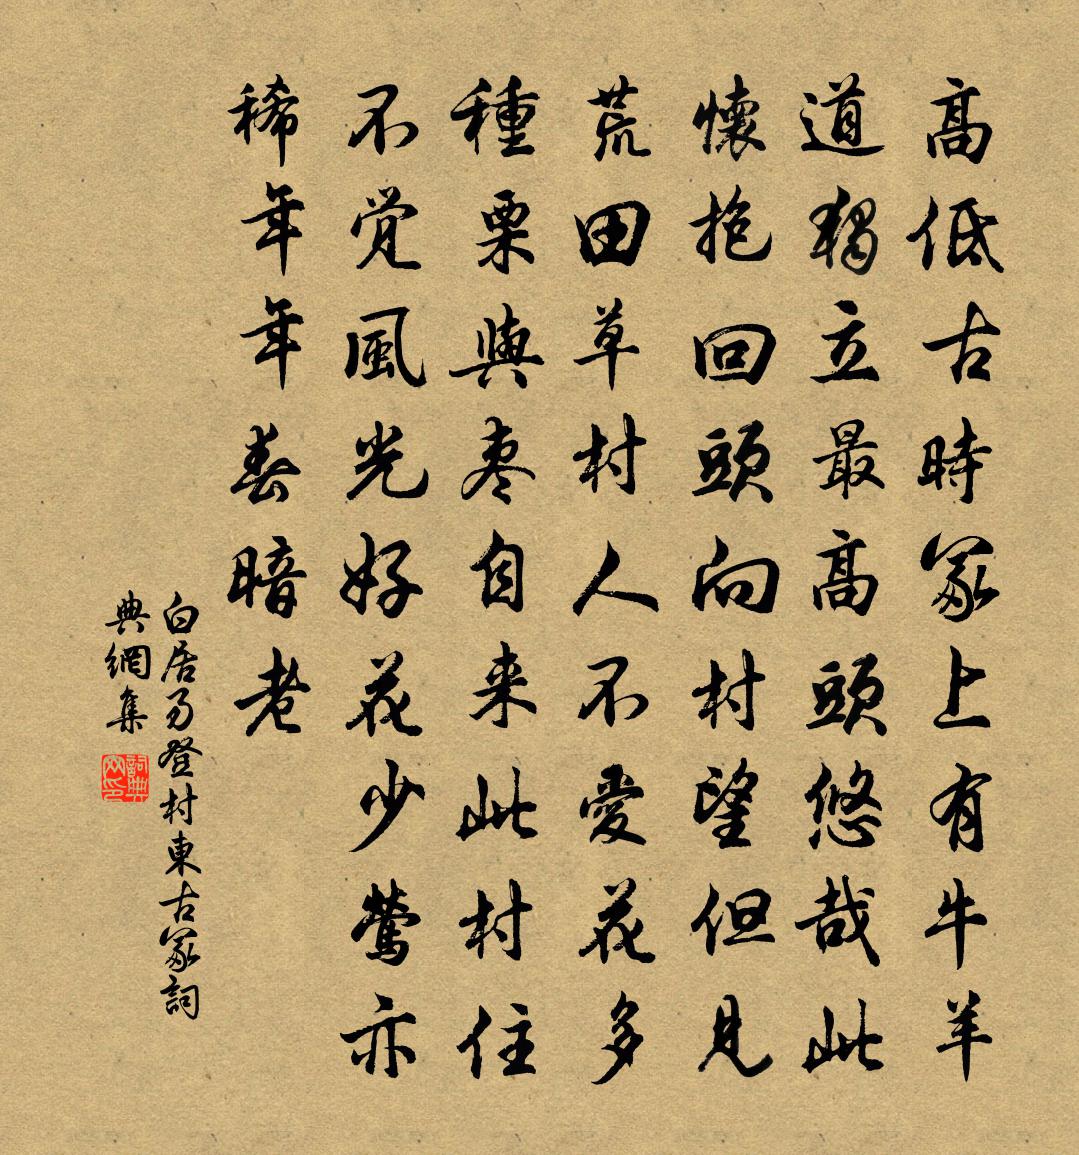 高低古時冢上有牛羊
道獨立最高頭悠哉此
懷抱回頭向村望但見
荒田草村人不愛花多
種栗與棗自来此村住
不覚風光好花少鶯亦
稀年年春暗老
白居易登村東古冢詞
典網集
詞典
网印